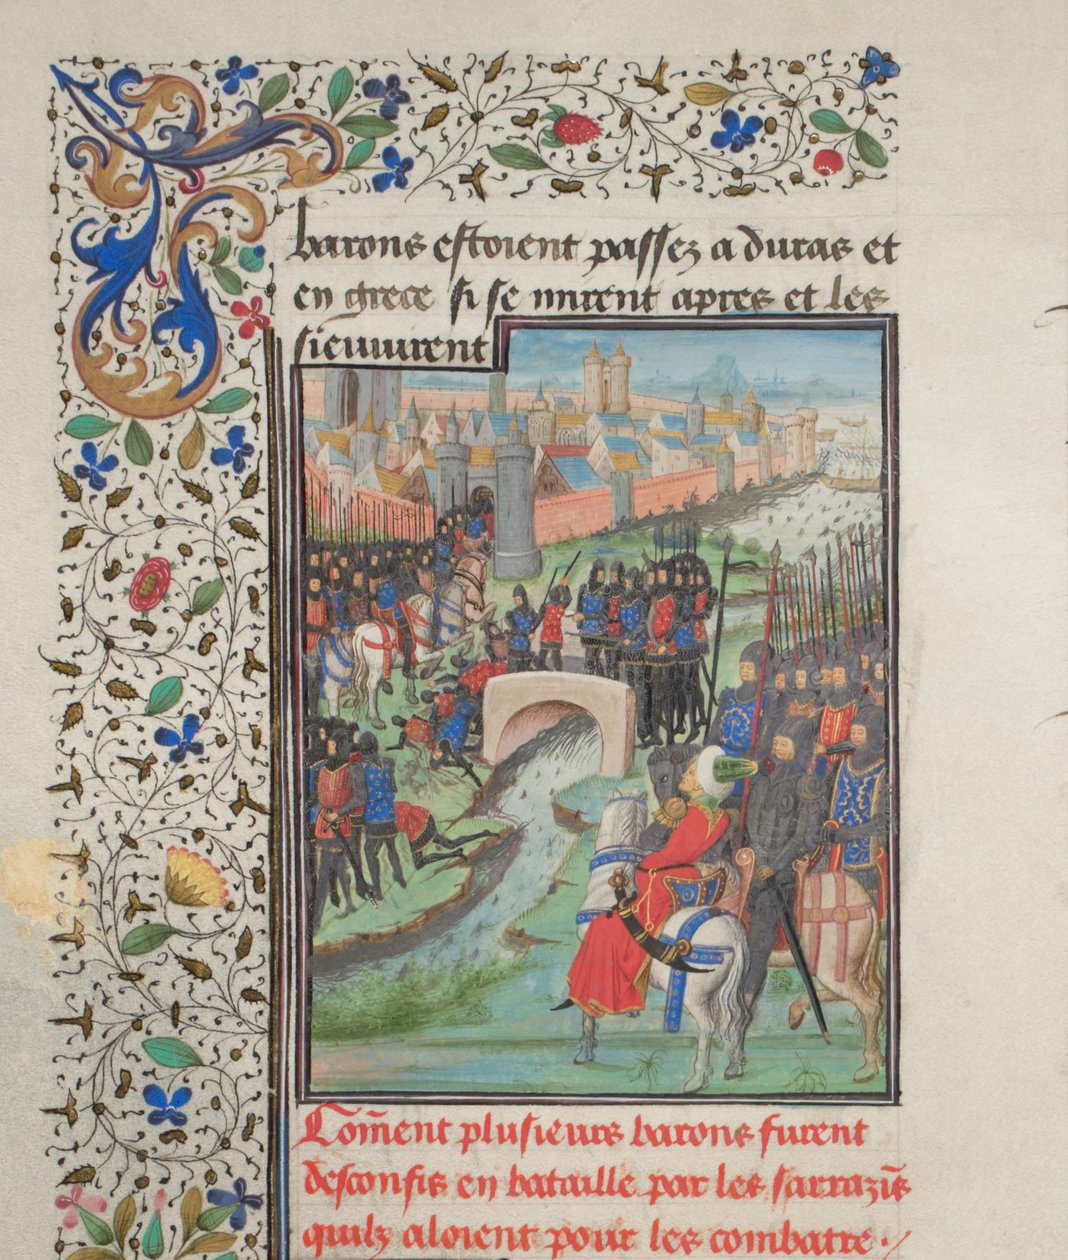 barons estoient passez a duras et
en grece si se mirent apres et les
sieuuirent
Com̄ent plusieurs barons furent
desconfis en bataille par les sarrazīs
quilz aloient pour les combatre ·/